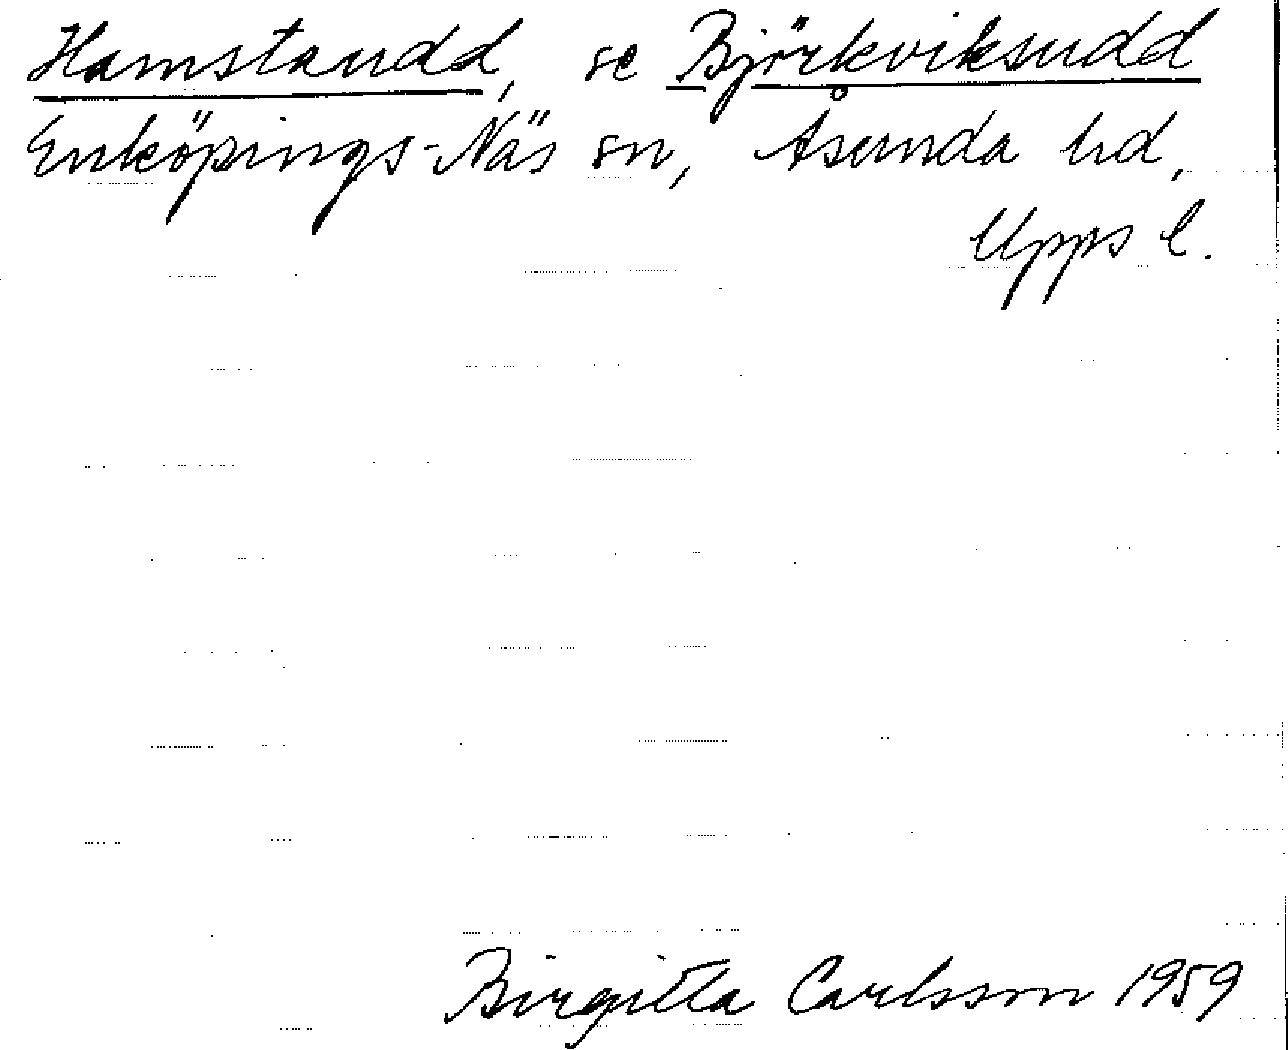 Hamstaudd, se Björkviksudd
Enköpings-Näs sn, Åsunda hd,
Upps l.
Birgitta Carlsson 1959